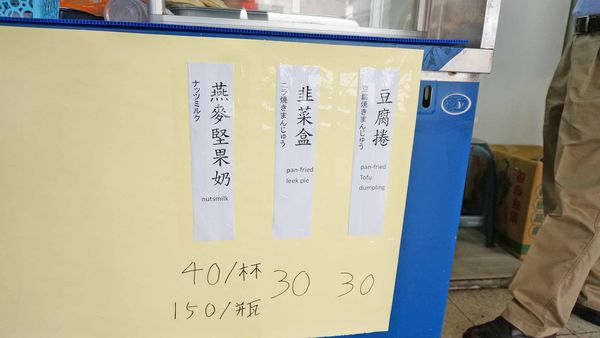 豆腐捲
豆腐焼きまんじゅう
pan-fried
Tofu
dumpling
30
韭菜盒
ニラ焼きまんじゅう
pan-fried
leek pie
30
燕麥堅果奶
ナッツミルク
nutsmilk
40/杯
150/瓶